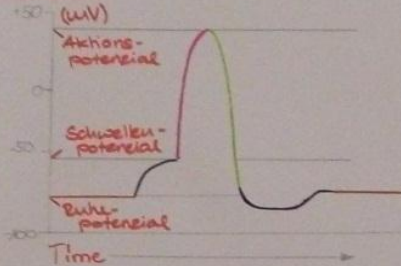 +50
(mV)
Aktions-
potenzial
0
Schwellen-
-50
potenzial
Ruhe-
potenzial
-100
Time